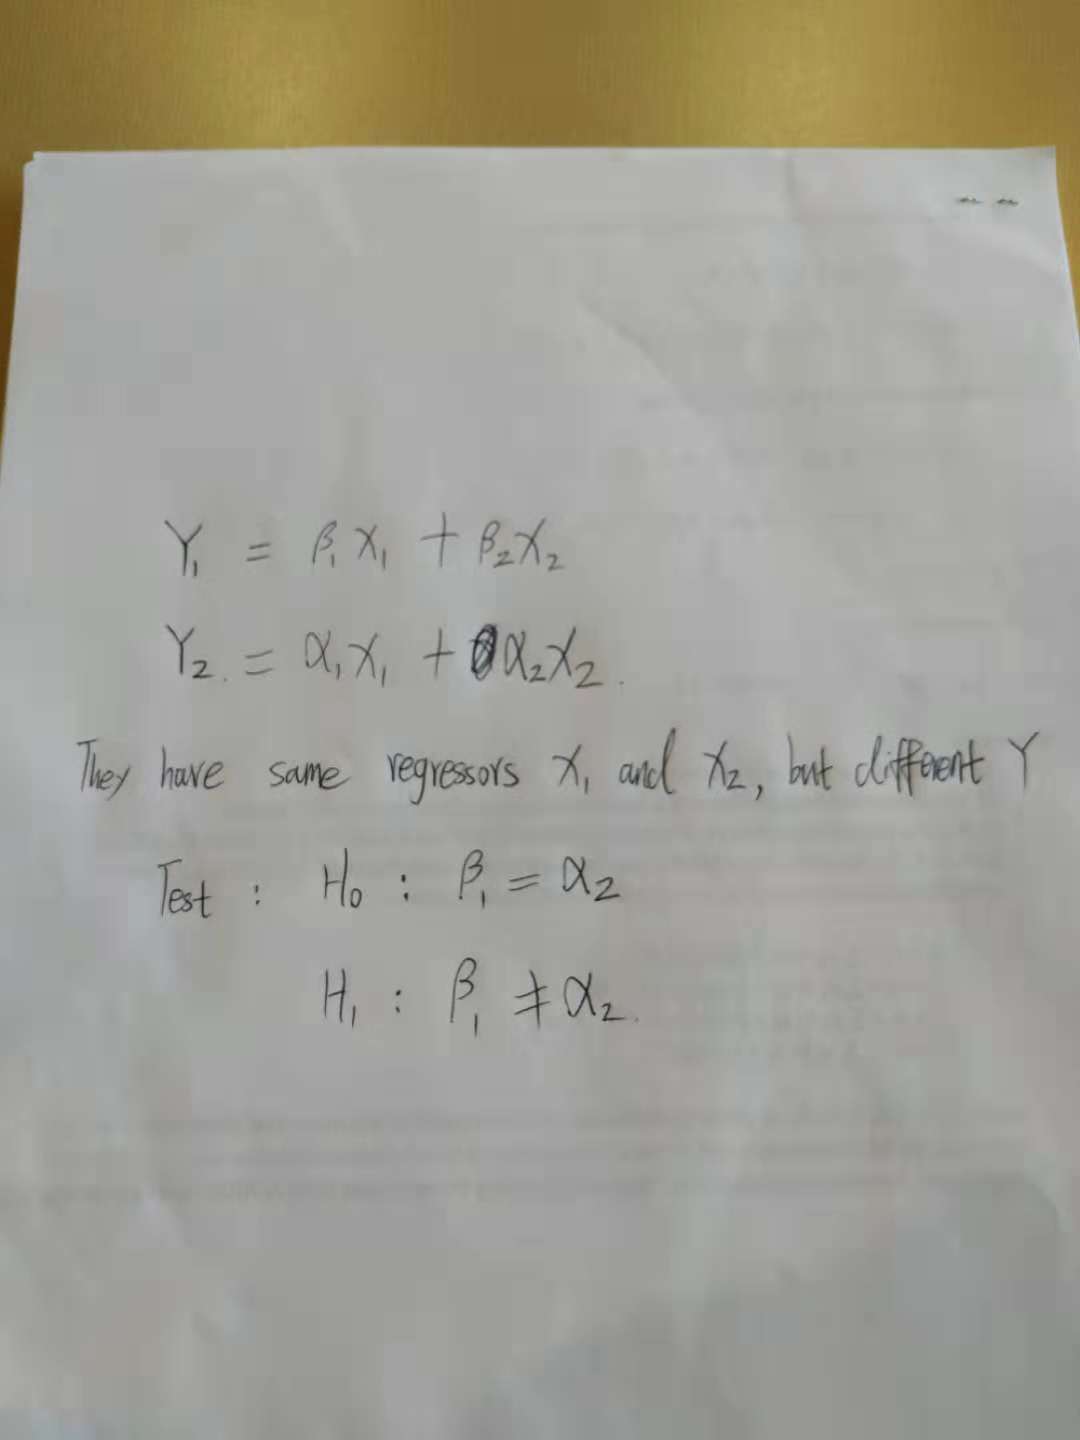 Y₁ = β₁X₁ + β₂X₂
Y₂. = α₁X₁ + α₂X₂.
They have same regressors X₁ and X₂, but different Y
Test : H₀ : β₁ = α₂
H₁ : β₁ ≠ α₂.